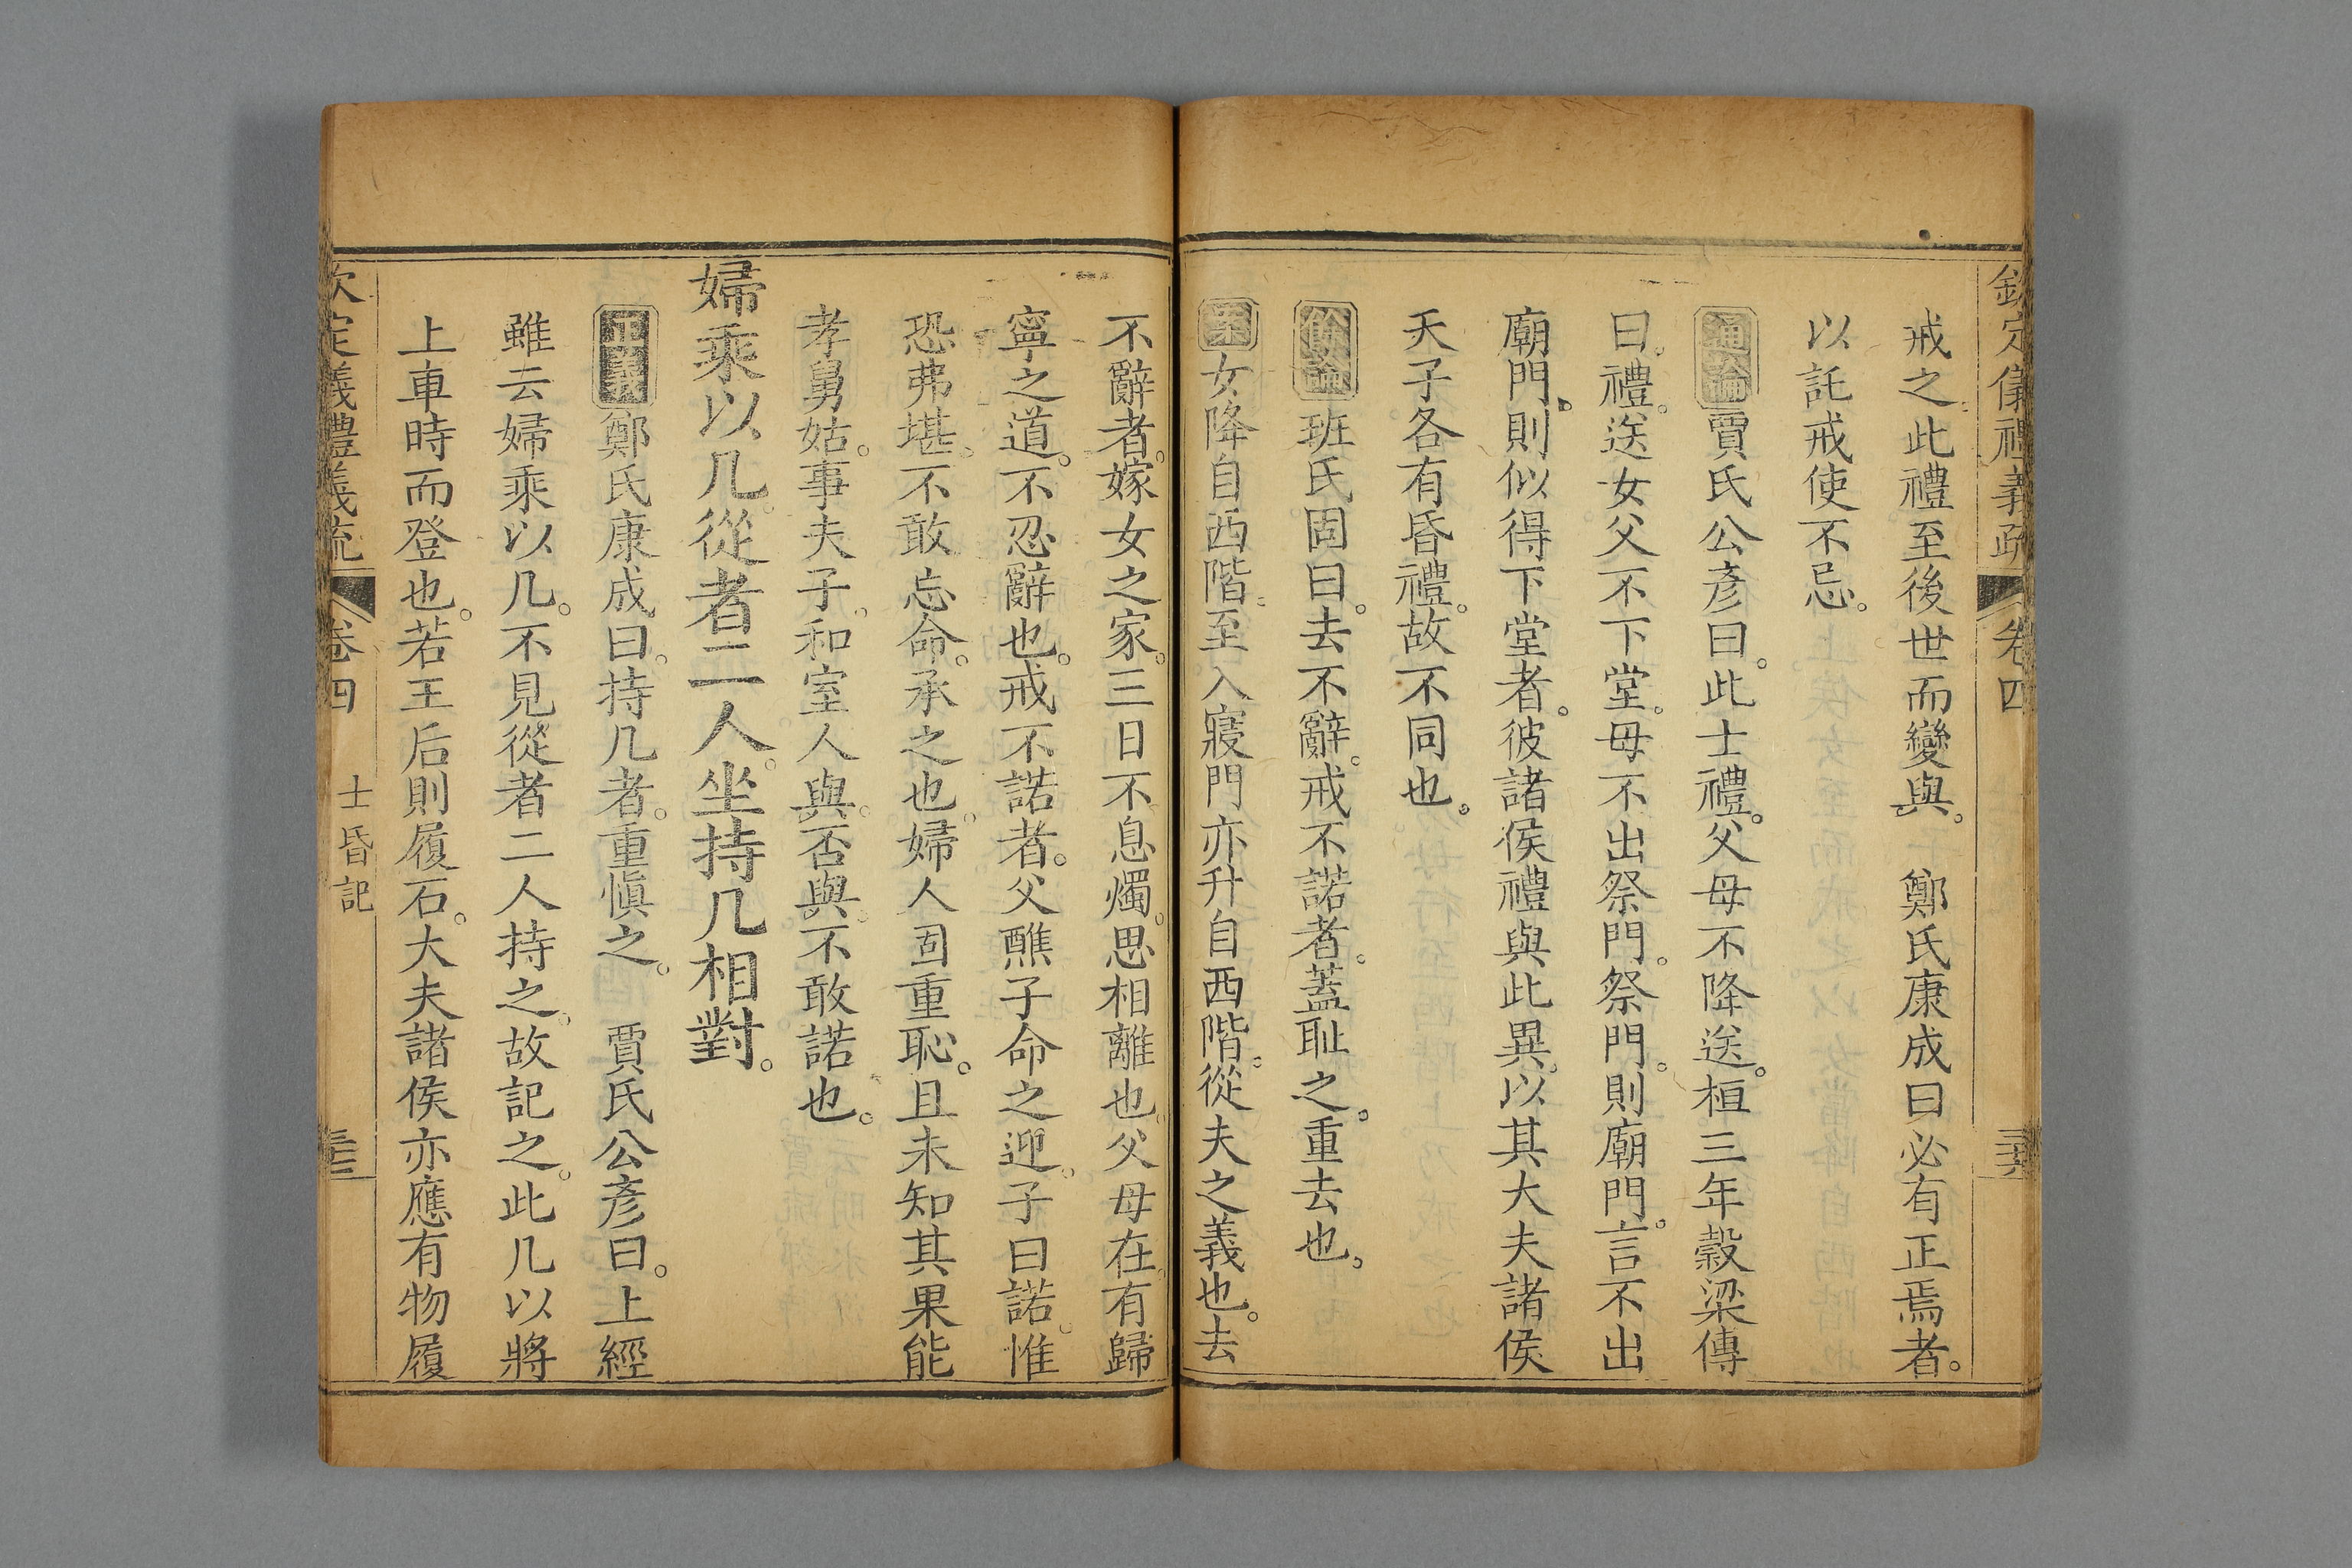 欽定儀禮義疏 卷四
戒之此禮至後世而變與。 鄭氏康成曰必有正焉者。
以託戒使不忘。
通論賈氏公彥曰。此士禮。父母不降送。桓三年穀梁傳
曰。禮。送女父不下堂。母不出祭門。祭門。則廟門。言不出
廟門。則似得下堂者。彼諸侯禮與此異。以其大夫諸侯
天子各有昏禮。故不同也。
餘論班氏固曰。去不辭。戒不諾者。蓋恥之。重去也。
案女降自西階。至入寢門亦升自西階。從夫之義也。去
不辭者。嫁女之家。三日不息燭。思相離也。父母在。有歸
寧之道。不忍辭也。戒不諾者。父醮子命之迎。子曰諾。惟
恐弗堪。不敢忘命。承之也。婦人固重恥。且未知其果能
孝舅姑。事夫子。和室人與。否與。不敢諾也。
婦乘以几。從者二人。坐持几相對。
正義鄭氏康成曰。持几者。重愼之。 賈氏公彥曰。上經
雖云婦乘以几。不見從者二人持之。故記之。此几以將
上車時而登也。若王后則履石。大夫諸侯亦應有物履
欽定儀禮義疏 卷四 士昏記